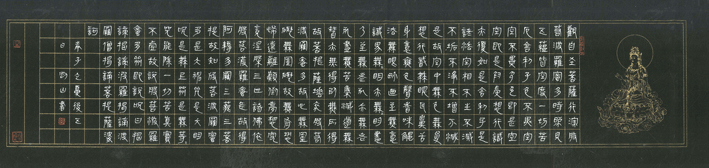 觀自在菩薩行深般
若波羅蜜多時照見
五蘊皆空度一切苦
厄舍利子色不異空
空不異色色即是空
空即是色受想行識
亦復如是舍利子是
諸法空相不生不滅
不垢不淨不增不減
是故空中無色無受
想行識無眼耳鼻舌
身意無色聲香味觸
法無眼界乃至無意
識界無無明亦無無明盡
乃至無老死亦無老
死盡無苦集滅道無
智亦無得以無所得
故菩提薩埵依般若
波羅蜜多故心無罣
礙無罣礙故無有恐
怖遠離顛倒夢想究
竟涅槃三世諸佛依
般若波羅蜜多故得
阿耨多羅三藐三菩
提故知般若波羅蜜
多是大神咒是大明
咒是無上咒是無等等
咒能除一切苦真實
不虛故說般若波羅
蜜多咒即說咒曰揭
諦揭諦波羅揭諦波
羅僧揭諦菩提薩婆
訶